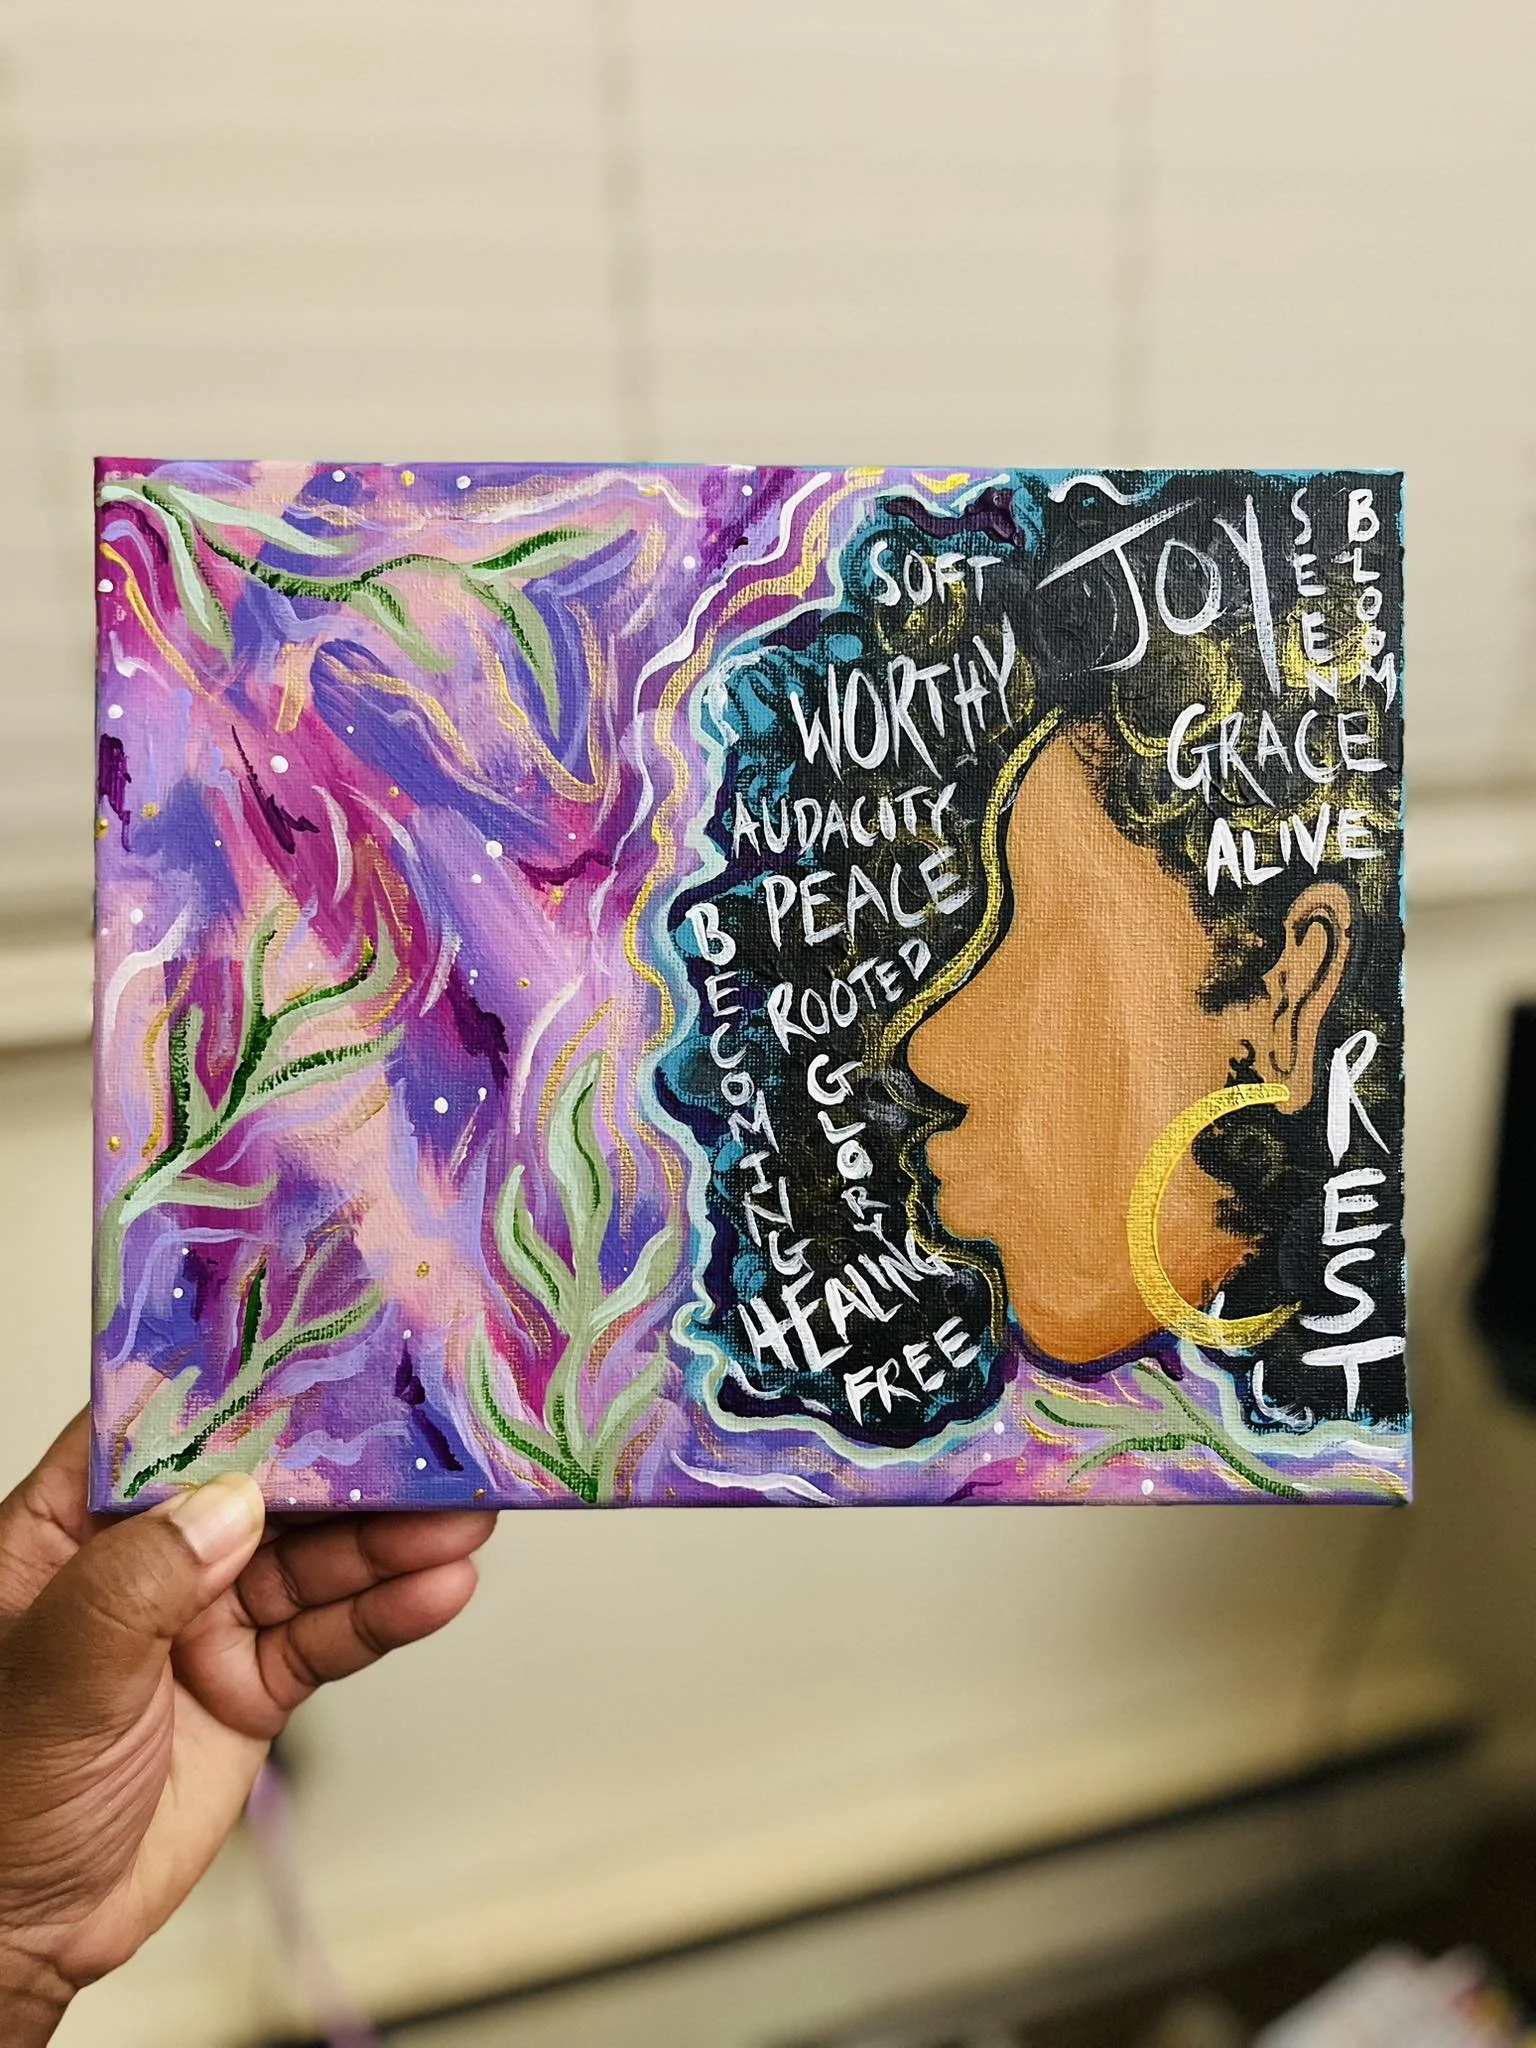 JOY
SEEN
BLOOM
SOFT
WORTHY
GRACE
AUDACITY
ALIVE
PEACE
BECOMING
ROOTED
GLORY
REST
HEALING
FREE